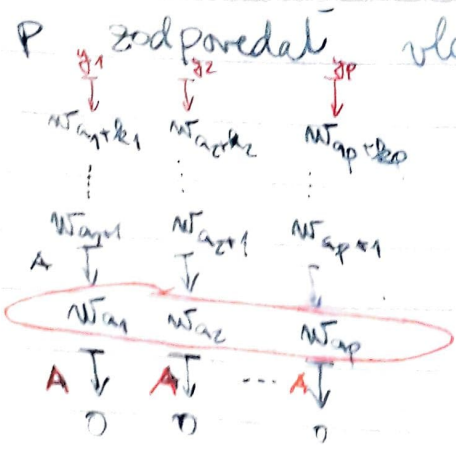 P zodpovedať
y₁ y₂ yₚ
w_{a₁+k₁} w_{a₂+k₂} w_{aₚ+kₚ}
w_{a₁+1} w_{a₂+1} w_{aₚ+1}
A
w_{a₁} w_{a₂} w_{aₚ}
A A ... A
0 0 0